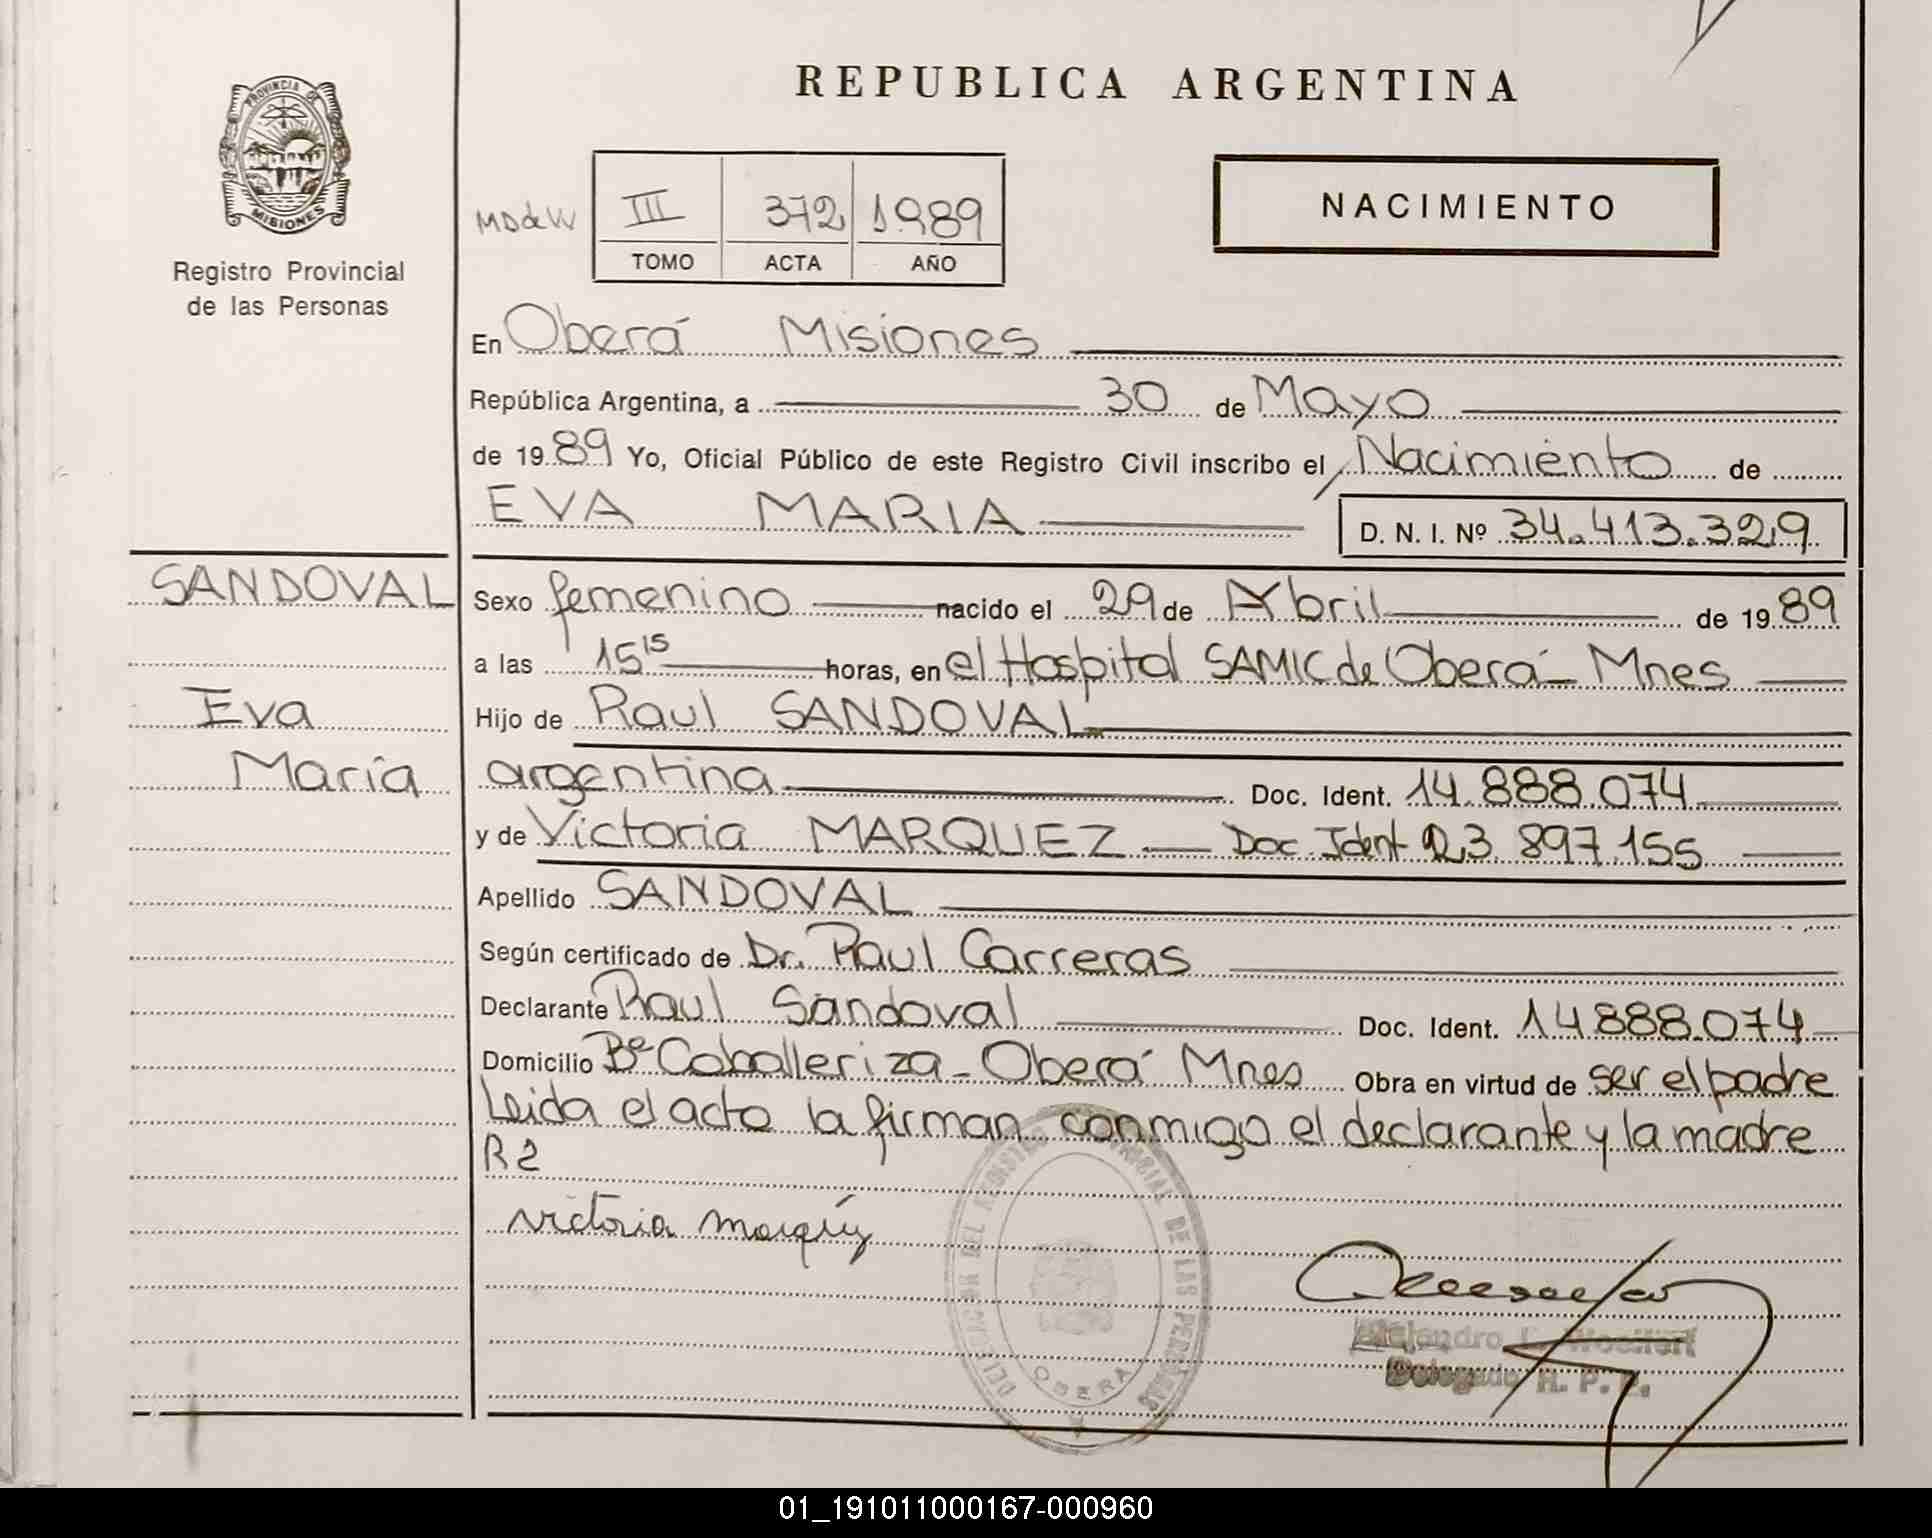 REPUBLICA ARGENTINA
PROVINCIA DE
MISIONES
Registro Provincial
de las Personas
MDdW III 372 1989
TOMO ACTA AÑO
NACIMIENTO
En Oberá Misiones
República Argentina, a 30 de Mayo
de 1989 Yo, Oficial Público de este Registro Civil inscribo el Nacimiento de
EVA MARIA D. N. I. Nº 34.413.329
SANDOVAL
Eva
María
Sexo femenino nacido el 29 de Abril de 1989
a las 15 15 horas, en el Hospital SAMIC de Oberá - Mnes
Hijo de Raul SANDOVAL
argentina Doc. Ident. 14.888.074
y de Victoria MARQUEZ Doc Ident 23.897.155
Apellido SANDOVAL
Según certificado de Dr. Raul Carreras
Declarante Raul Sandoval Doc. Ident. 14.888.074
Domicilio Bº Caballeriza - Oberá Mnes Obra en virtud de ser el padre
Leida el acta la firman conmigo el declarante y la madre
R2
victoria marquez
DELEGACION DEL REGISTRO PROVINCIAL DE LAS PERSONAS
OBERA
Alejandro
Delegado R. P. P.
01_191011000167-000960